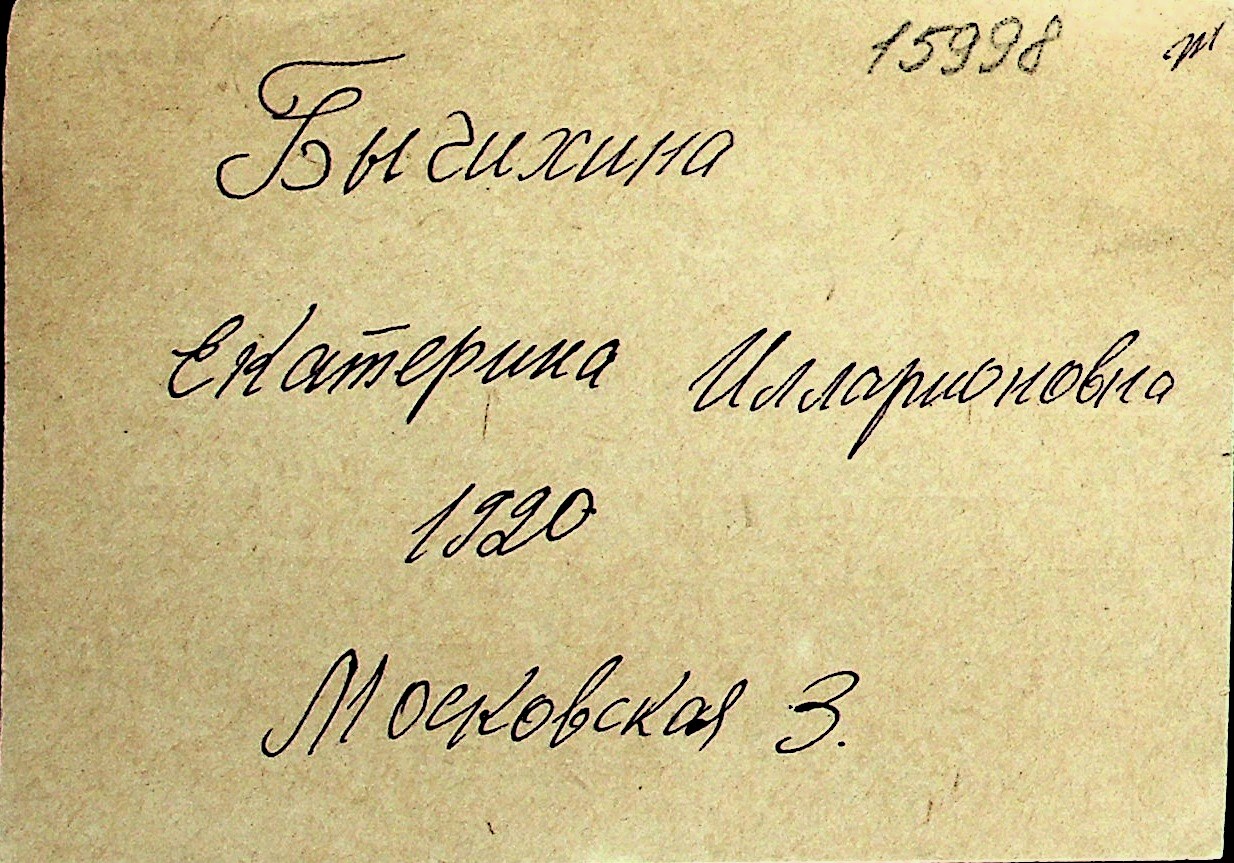 15998
Екатерина Илларионовна
1920
Московская 3.